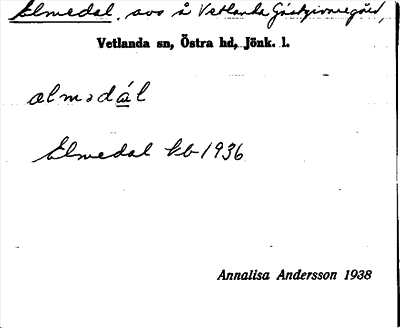 Elmedal, avs å Vetlanda Gästgivaregård,
Vetlanda sn, Östra hd, Jönk. l.
almədál
Elmedal kb 1936
Annalisa Andersson 1938